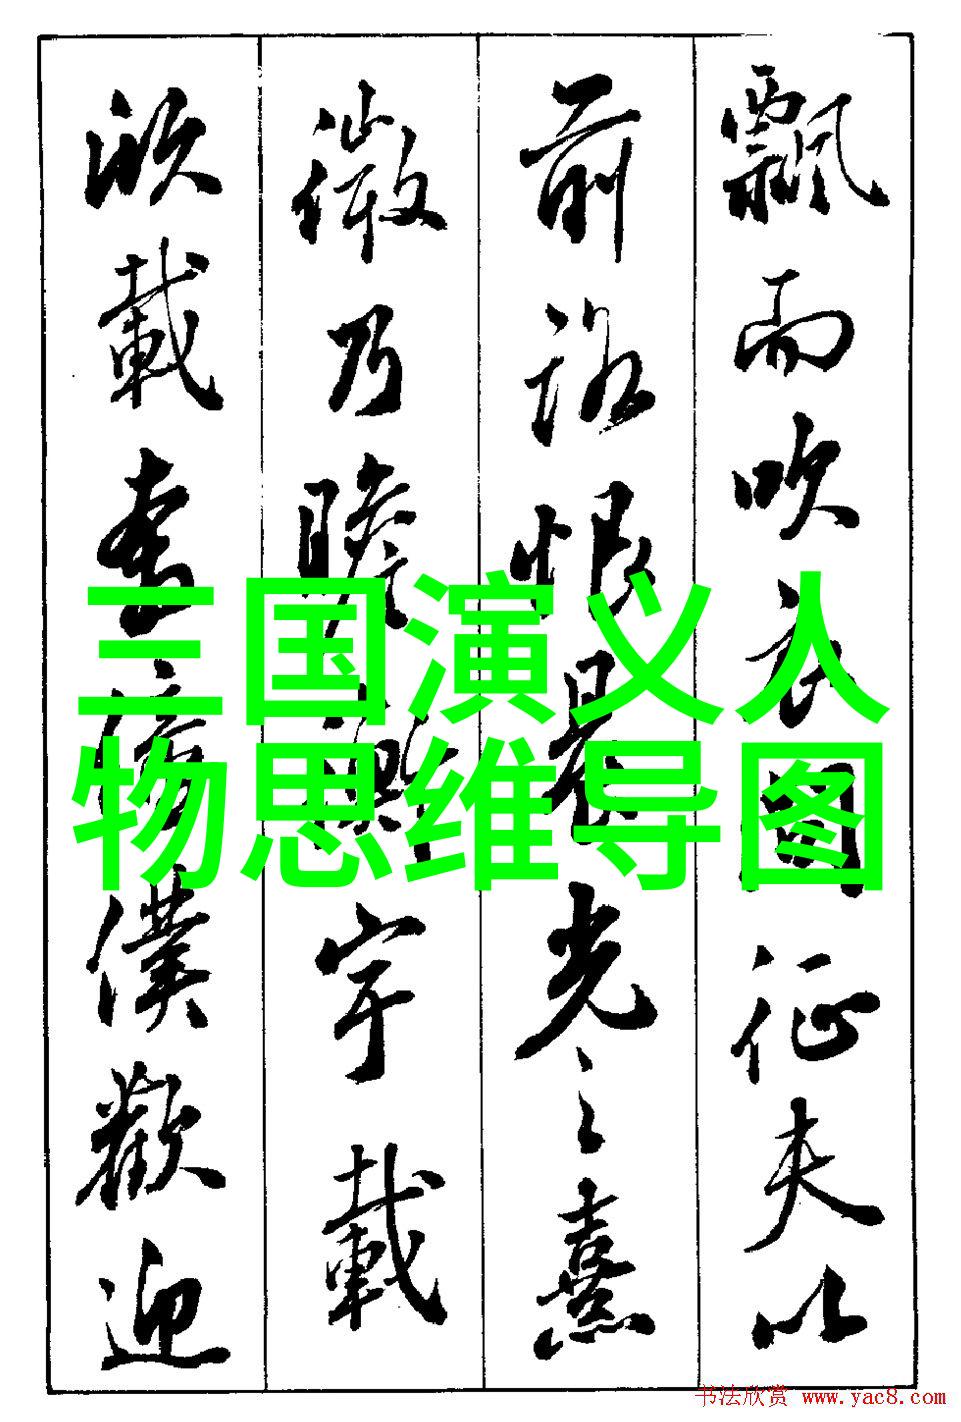 飄而吹衣問征夫以
前路恨晨光之熹
微乃瞻衡宇載
欣載奔僮僕歡迎
三国演义人
物思维导图
书法欣赏 www.yac8.com